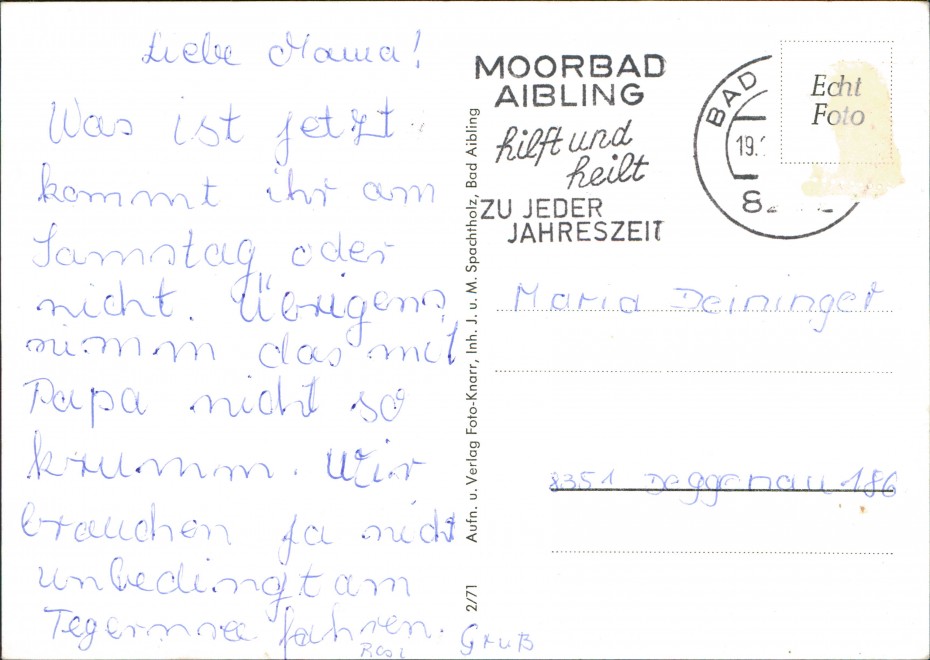 Liebe Mama!
Was ist jetzt
kommt ihr am
Samstag oder
nicht. Übrigens
nimm das mit
Papa nicht so
krumm. Wir
brauchen ja nicht
unbedingt am
Tegernsee fahren.
Gruß
Resi
Aufn. u. Verlag Foto-Knarr, Inh. J. u. M. Spachtholz, Bad Aibling
2/71
MOORBAD
AIBLING
hilft und
heilt
ZU JEDER
JAHRESZEIT
BAD
19.
8
Echt
Foto
Maria Deininger
8351 Deggenau 186